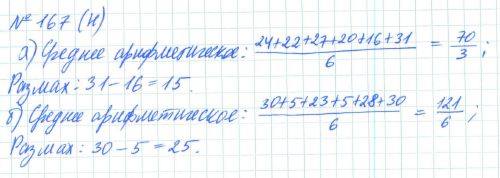 № 167 (н)
а) Среднее арифметическое: (24+22+27+20+16+31)/6 = 70/3;
Размах: 31-16=15.
б) Среднее арифметическое: (30+5+23+5+28+30)/6 = 121/6;
Размах: 30-5=25.